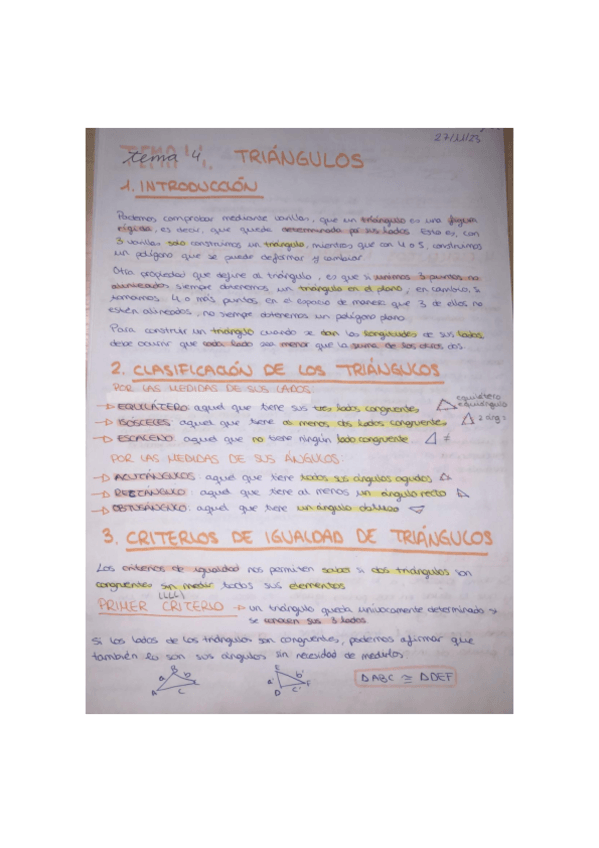 27/11/23
tema 4. TRIÁNGULOS
1. INTRODUCCIÓN
Podemos comprobar mediante varillas, que un triángulo es una figura
rígida, es decir, que queda determinada por sus lados. Esto es, con
3 varillas solo construimos un triángulo, mientras que con 4 o 5, construimos
un polígono que se puede deformar y cambiar.
Otra propiedad que define al triángulo, es que si unimos 3 puntos no
alineados siempre obtenemos un triángulo en el plano, en cambio, si
tomamos 4 o más puntos en el espacio de manera que 3 de ellos no
estén alineados, no siempre obtenemos un polígono plano.
Para construir un triángulo cuando se dan las longitudes de sus lados
debe ocurrir que cada lado sea menor que la suma de los otros dos.
2. CLASIFICACIÓN DE LOS TRIÁNGULOS
POR LAS MEDIDAS DE SUS LADOS:
→ EQUILÁTERO: aquel que tiene sus tres lados congruentes equilátero equiángulo
→ ISÓSCELES: aquel que tiene al menos dos lados congruentes 2 áng =
→ ESCALENO: aquel que no tiene ningún lado congruente ≠
POR LAS MEDIDAS DE SUS ÁNGULOS:
→ ACUTÁNGULOS: aquel que tiene todos sus ángulos agudos
→ RECTÁNGULO: aquel que tiene al menos un ángulo recto
→ OBTUSÁNGULO: aquel que tiene un ángulo obtuso
3. CRITERIOS DE IGUALDAD DE TRIÁNGULOS
Los criterios de igualdad nos permiten saber si dos triángulos son
congruentes sin medir todos sus elementos
(LLL)
PRIMER CRITERIO → un triángulo queda unívocamente determinado si
se conocen sus 3 lados
Si los lados de los triángulos son congruentes, podemos afirmar que
también lo son sus ángulos sin necesidad de medirlos.
B E
a b a' b' F ΔABC ≅ ΔDEF
A C D C'